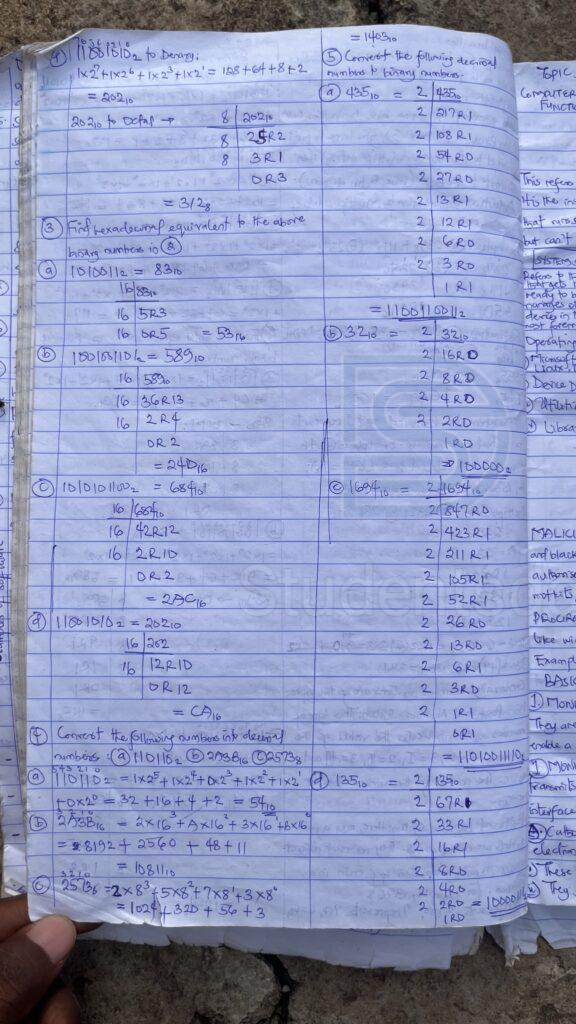 11001010₂ to Denary:
1x2⁷+1x2⁶+1x2³+1x2¹ = 128+64+8+2
= 202₁₀
202₁₀ to Octal →
8 | 202₁₀
8 | 25R2
8 | 3R1
0R3
= 312₈
③ Find hexadecimal equivalent to the above
binary numbers in ②
ⓐ 1010011₂ = 83₁₀
16 | 83₁₀
16 | 5R3
16 | 0R5 = 53₁₆
ⓑ 1001001101₂ = 589₁₀
16 | 589₁₀
16 | 36R13
16 | 2R4
0R2
= 24D₁₆
ⓒ 1010101100₂ = 684₁₀
16 | 684₁₀
16 | 42R12
16 | 2R10
0R2
= 2AC₁₆
ⓓ 11001010₂ = 202₁₀
16 | 202
16 | 12R10
0R12
= CA₁₆
④ Convert the following numbers into decimal
numbers: ⓐ 110110₂ ⓑ 2A3B₁₆ ⓒ 2573₈
5 4 3 2 1 0
ⓐ 110110₂ = 1x2⁵+1x2⁴+0x2³+1x2²+1x2¹
+0x2⁰ = 32+16+4+2 = 54₁₀
3 2 1 0
ⓑ 2A3B₁₆ = 2x16³+Ax16²+3x16¹+Bx16⁰
= 8192+2560+48+11
= 10811₁₀
3 2 1 0
ⓒ 2573₈ = 2x8³+5x8²+7x8¹+3x8⁰
= 1024+320+56+3
= 1403₁₀
⑤ Convert the following decimal
numbers to binary numbers.
ⓐ 435₁₀ = 2 | 435₁₀
2 | 217R1
2 | 108R1
2 | 54R0
2 | 27R0
2 | 13R1
2 | 12R1
2 | 6R0
2 | 3R0
1R1
= 1100110011₂
ⓑ 32₁₀ = 2 | 32₁₀
2 | 16R0
2 | 8R0
2 | 4R0
2 | 2R0
1R0
⇒ 100000₂
ⓒ 1694₁₀ = 2 | 1694₁₀
2 | 847R0
2 | 423R1
2 | 211R1
2 | 105R1
2 | 52R1
2 | 26R0
2 | 13R0
2 | 6R1
2 | 3R0
2 | 1R1
0R1
= 11010011110₂
ⓓ 135₁₀ = 2 | 135₀
2 | 67R1
2 | 33R1
2 | 16R1
2 | 8R0
2 | 4R0
2 | 2R0
1R0
TOPIC
COMPUTER
FUNCTI
This refers
It is the in
that runs
but can't
SYSTEM
Refers to th
ready to b
manages
most
Operating
Microsoft
Linux
Device D
Utiliti
Libra
MALICI
and black
authoris
PROGRA
like wi
Exampl
BASI
1. Moni
They are
enable a
Moni
transmits
interface
Catho
electron
These
They